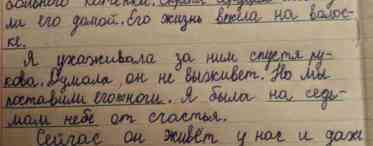 больного котёнка.
ли его домой. Его жизнь висела на волос-
ке.
Я ухаживала за ним спустя ру-
кава. Думала, он не выживет. Но мы
поставили его на ноги. Я была на седь-
мом небе от счастья.
Сейчас он живёт у нас и даже